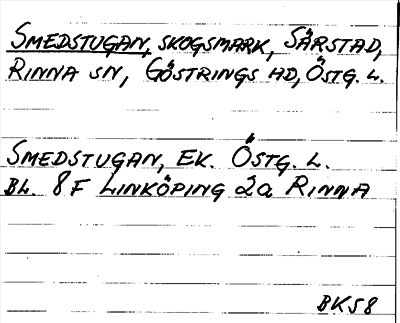 SMEDSTUGAN, SKOGSMARK, SÄRSTAD,
RINNA SN, GÖSTRINGS HD, ÖSTG. L.
SMEDSTUGAN, EK. ÖSTG. L.
BL. 8F LINKÖPING 2a RINNA
BK58